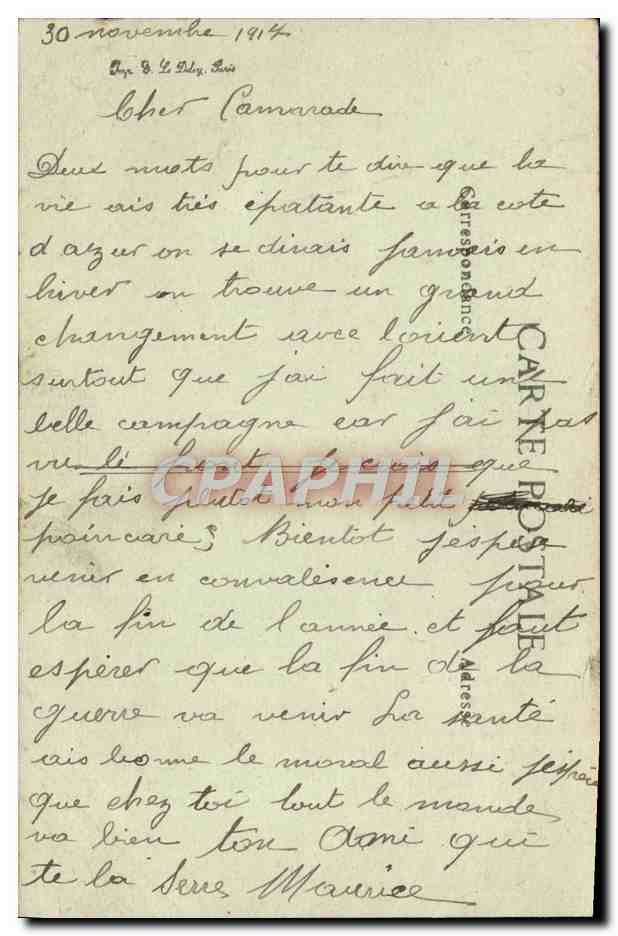 30 novembre 1917
Imp. E. Le Deley, Paris
Cher Camarade
Deux mots pour te dire que la
vie ais très épatante a la cote
d azur on se dirais jamais en
hiver on trouve un grand
changement avec l'orient
surtout que j'ai fait une
belle campagne car j'ai pas
vu le que
je fais plutot mon petit
poincaré; Bientot j'espère
venir en convalésence pour
la fin de l'année. et faut
espérer que la fin de la
guerre va venir La santé
ais bonne le moral aussi j'espère
que chez toi tout le monde
va bien ton Ami qui
te la Serre Maurice
CARTE POSTALE
Correspondance
Adresse
CPAPHIL